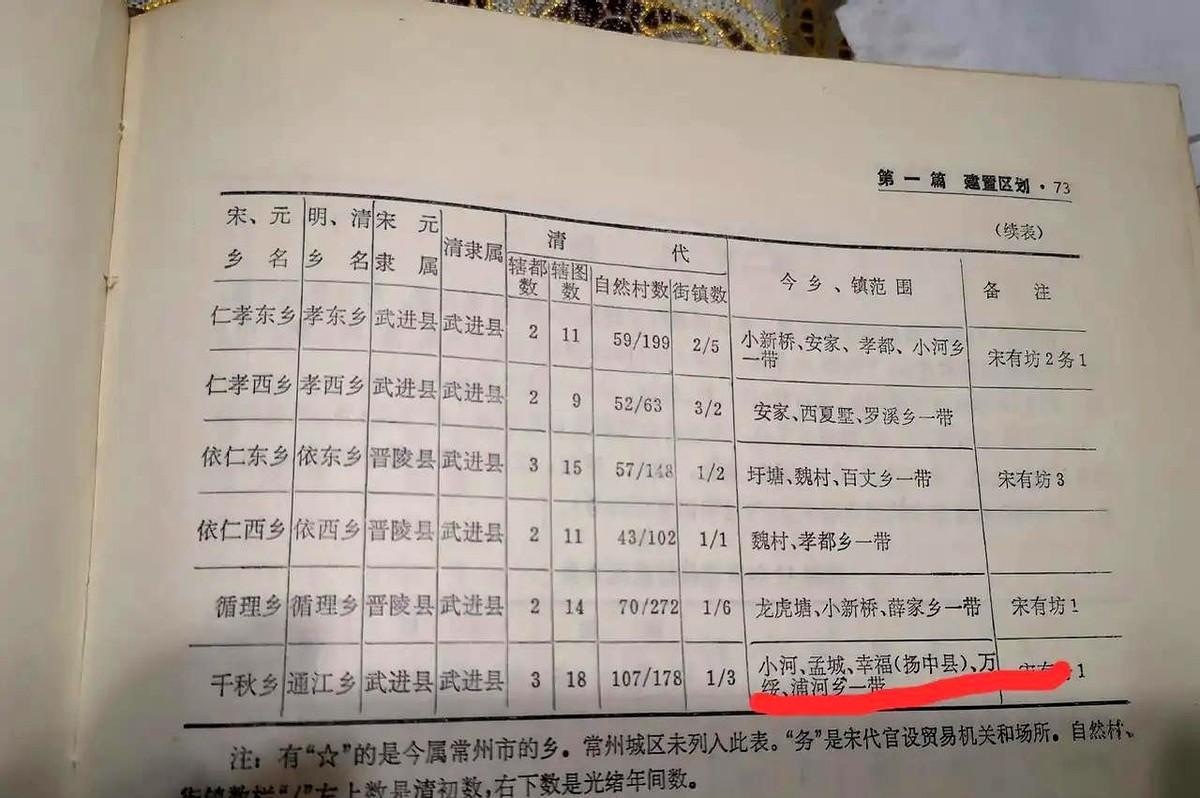 第一篇 建置区划·73
(续表)
宋、元乡名 明、清乡名 宋元隶属 清隶属 清代 辖都数 辖图数 自然村数 街镇数 今乡、镇范围 备注
仁孝东乡 孝东乡 武进县 武进县 2 11 59/199 2/5 小新桥、安家、孝都、小河乡一带 宋有坊2务1
仁孝西乡 孝西乡 武进县 武进县 2 9 52/63 3/2 安家、西夏墅、罗溪乡一带
依仁东乡 依东乡 晋陵县 武进县 3 15 57/148 1/2 圩塘、魏村、百丈乡一带 宋有坊3
依仁西乡 依西乡 晋陵县 武进县 2 11 43/102 1/1 魏村、孝都乡一带
循理乡 循理乡 晋陵县 武进县 2 14 70/272 1/6 龙虎塘、小新桥、薛家乡一带 宋有坊1
千秋乡 通江乡 武进县 武进县 3 18 107/178 1/3 小河、孟城、幸福(扬中县)、万绥、浦河乡一带 1
注：有“☆”的是今属常州市的乡。常州城区未列入此表。“务”是宋代官设贸易机关和场所。自然村、
街镇数栏“/”左上数是清初数,右下数是光绪年间数。